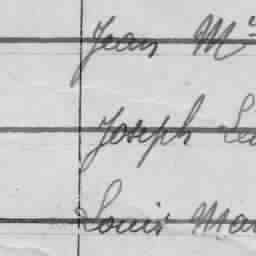 Jean M
Joseph
Louis Ma